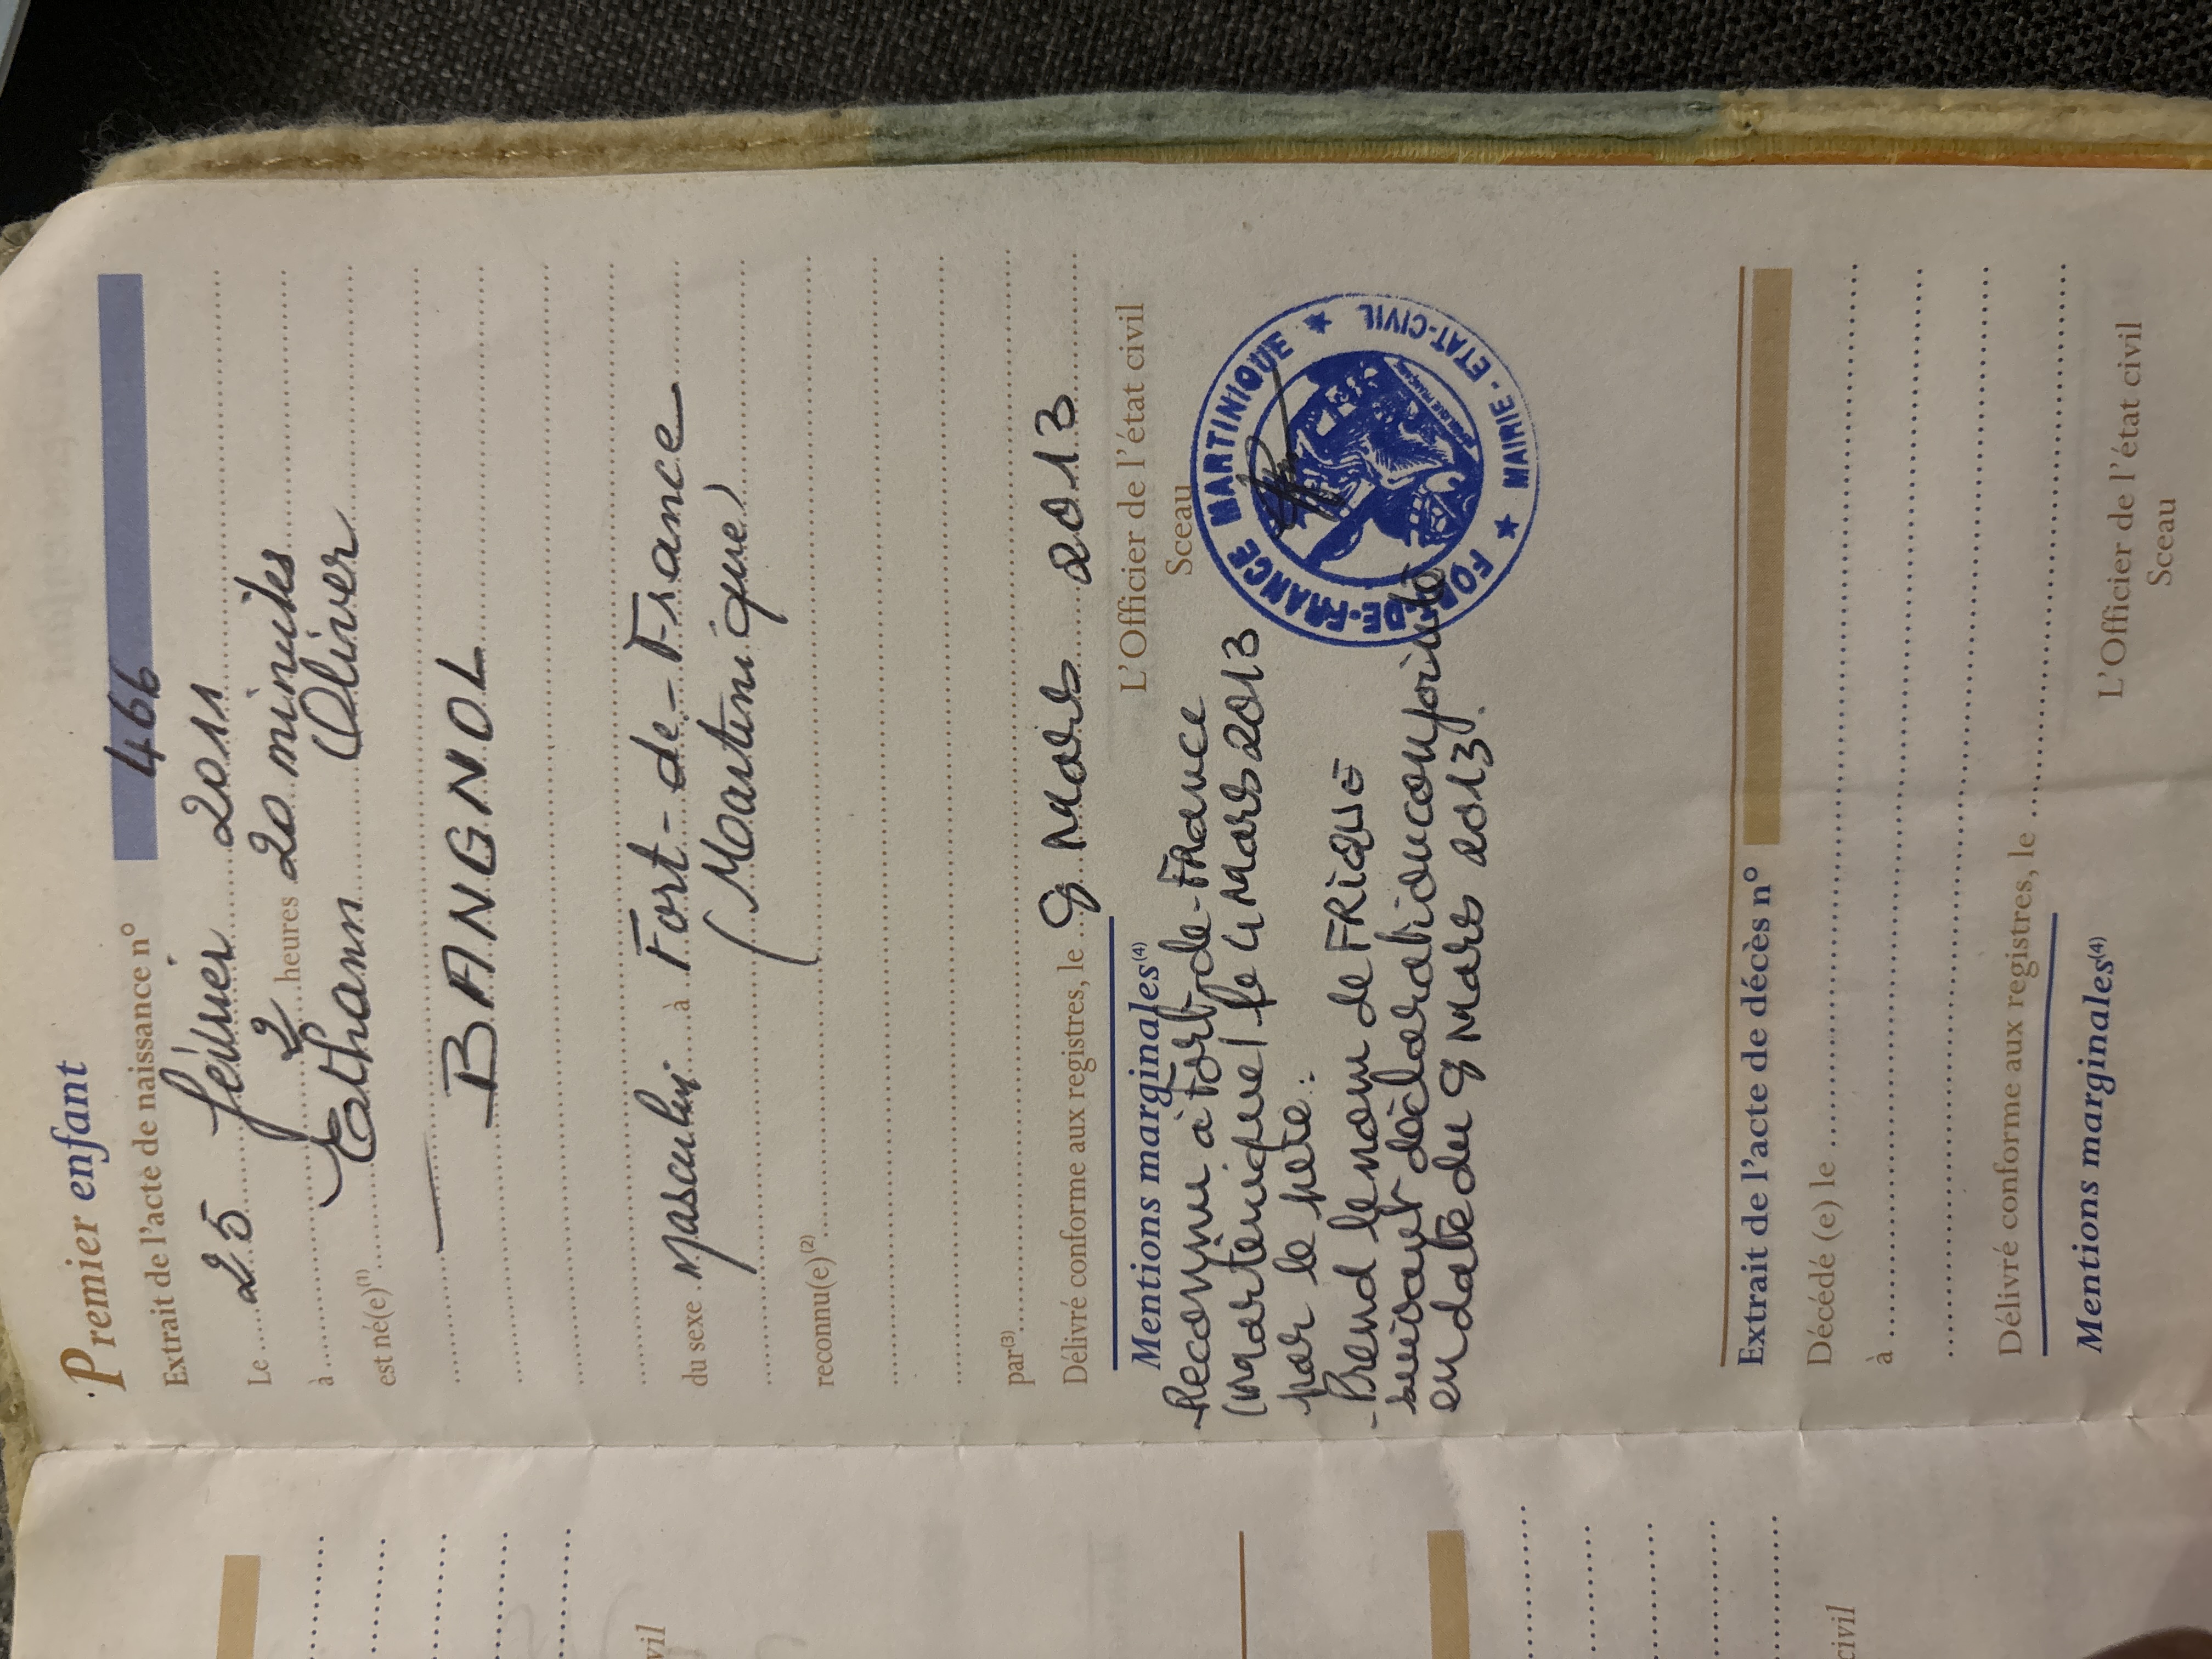 Premier enfant
Extrait de l'acte de naissance n° 466
Le 25 février 2011
à 2 heures 20 minutes
est né(e)(1) Ethann Oliver
BANGNOL
du sexe masculin à Fort-de-France
(Martinique)
reconnu(e)(2)
par(3)
Délivré conforme aux registres, le 9 Mars 2013
L'Officier de l'état civil
Sceau
Mentions marginales(4)
-Reconnu à Fort-de-France
(Martinique) le 4 Mars 2013
par le père.
-Prend le nom de FRIQUÉ
suivant déclaration conjointe
en date du 9 Mars 2013.
FORT-DE-FRANCE MARTINIQUE ★ MAIRIE - ETAT-CIVIL ★
Extrait de l'acte de décès n°
Décédé (e) le
à
Délivré conforme aux registres, le
L'Officier de l'état civil
Sceau
Mentions marginales(4)
vil
civil